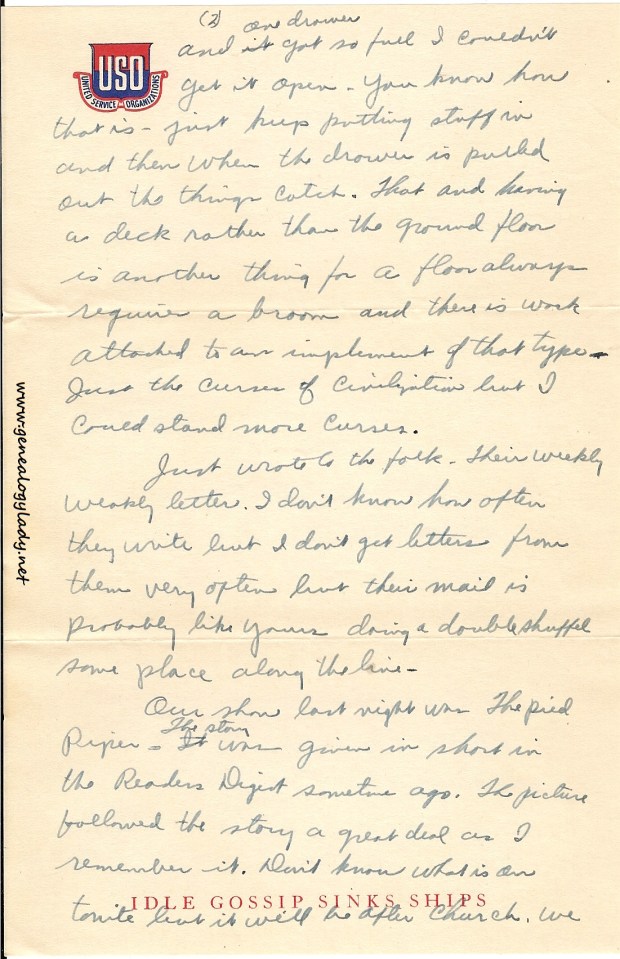 (2) one drawer
and it got so full I couldn't
USO
UNITED SERVICE ORGANIZATIONS
get it open - You know how
that is - just keep putting stuff in
and then when the drawer is pulled
out the things catch. That and having
a deck rather than the ground floor
is another thing for a floor always
requires a broom and there is work
attached to an implement of that type -
Just the curses of Civilization but I
could stand more curses.
Just wrote to the folk - Their weekly
weakly letter. I don't know how often
they write but I don't get letters from
them very often but their mail is
probably like yours doing a double shuffel
some place along the line -
Our show last night was The pied
The story
Piper - It was given in short in
the Readers Digest sometime ago. The picture
followed the story a great deal as I
remember it. Don't know what is on
IDLE GOSSIP SINKS SHIPS
tonite but it will be after Church. We
www.genealogylady.net